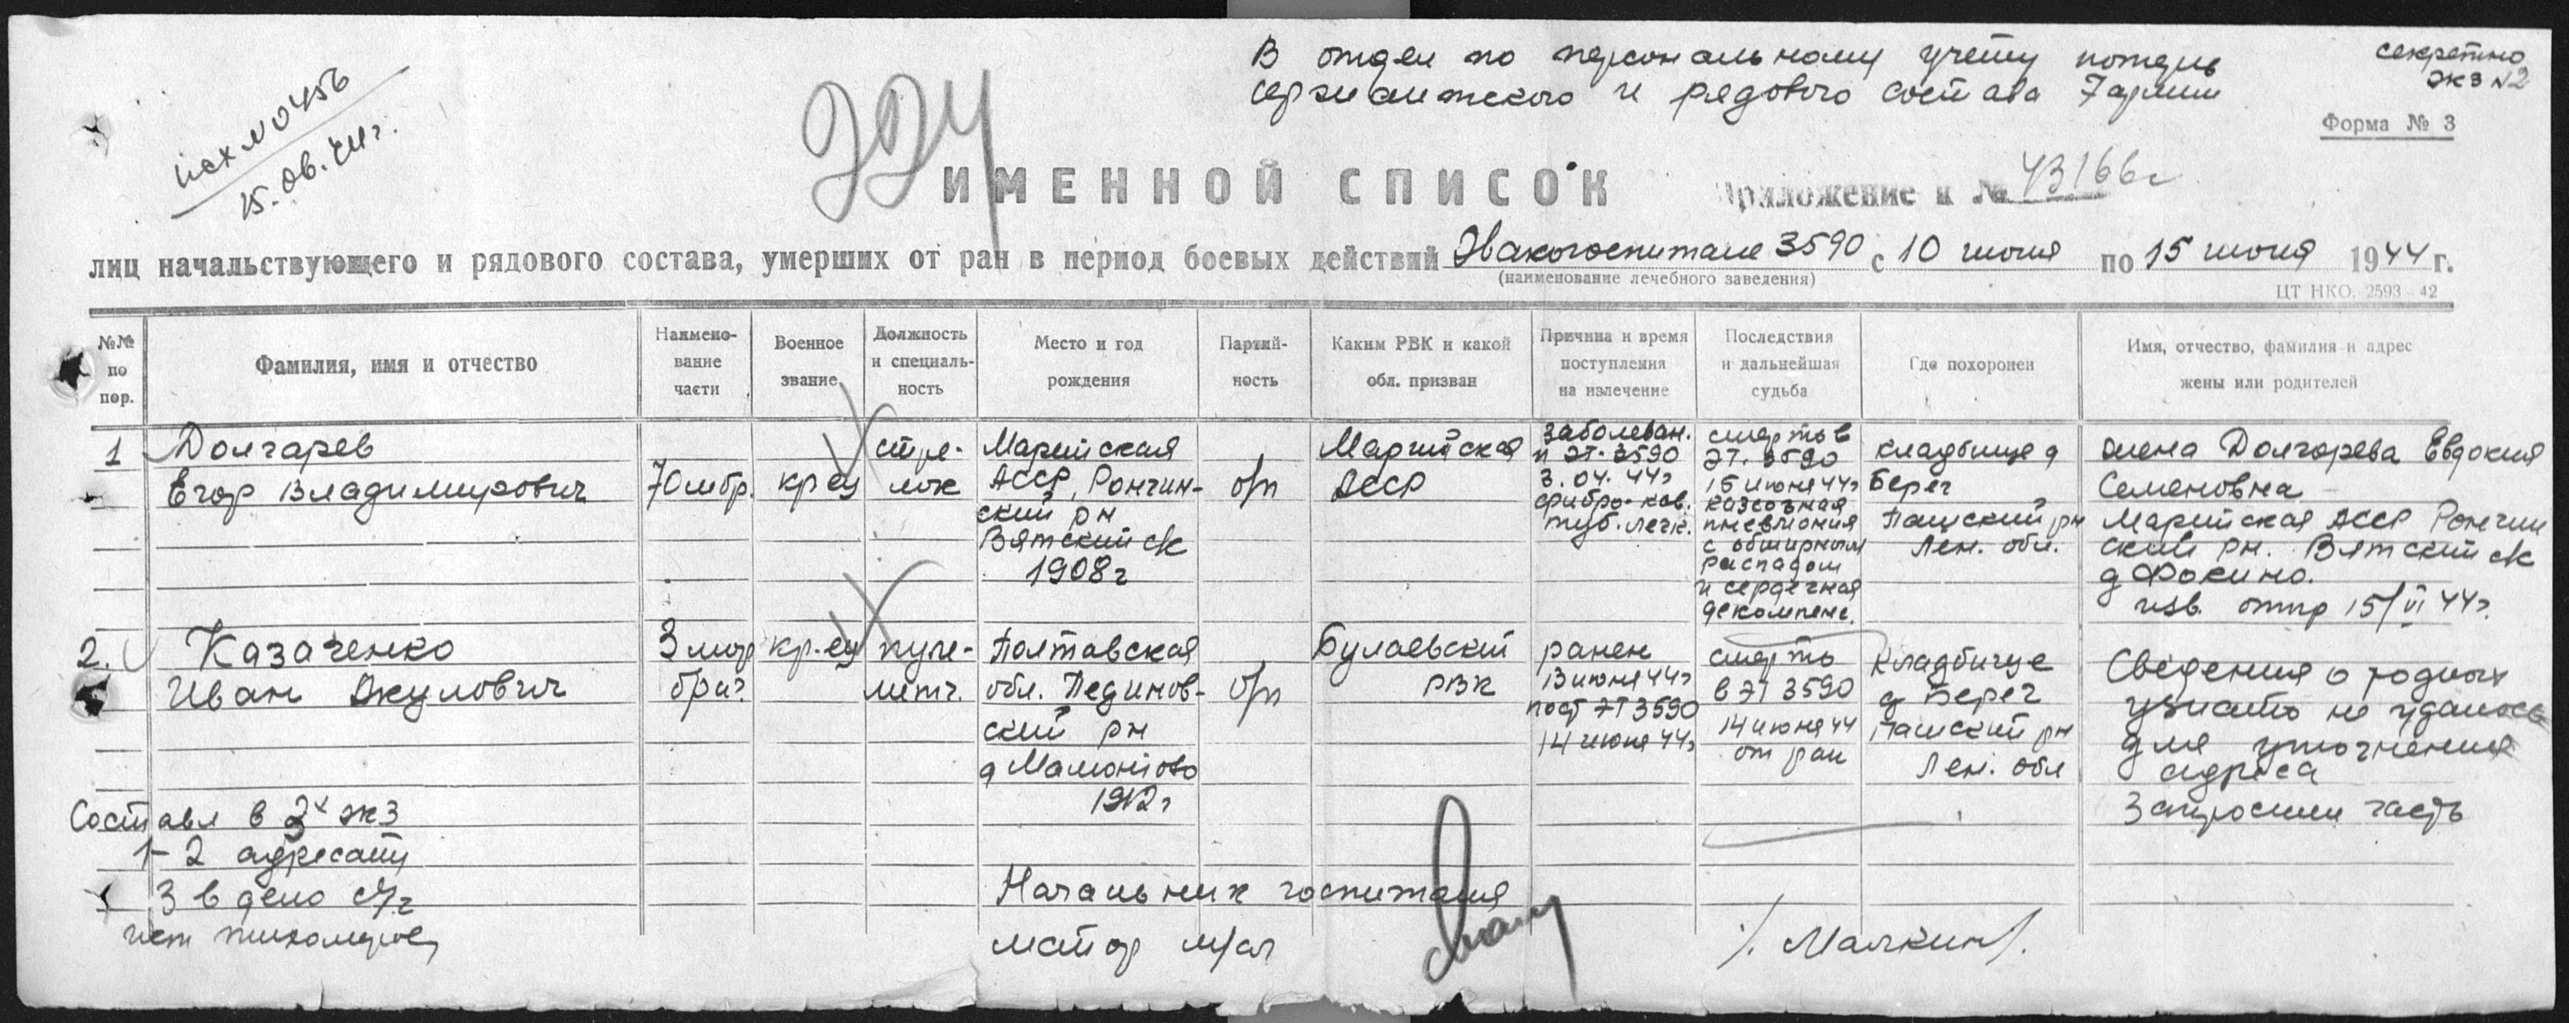 В отдел по персональному учёту потерь
сержантского и рядового состава 7 армии
секретно
экз №2
Форма № 3
исх №0456
15.06.44г.
ИМЕННОЙ СПИСОК
Приложение к № 43166с
лиц начальствующего и рядового состава, умерших от ран в период боевых действий Эвакогоспитале 3590 с 10 июня по 15 июня 1944 г.
(наименование лечебного заведения)
ЦТ НКО. 2593—42
№№ по пор.
Фамилия, имя и отчество
Наименование части
Военное звание
Должность и специальность
Место и год рождения
Партийность
Каким РВК и какой обл. призван
Причина и время поступления на излечение
Последствия и дальнейшая судьба
Где похоронен
Имя, отчество, фамилия и адрес жены или родителей
1
Долгарев
Егор Владимирович
70 мбр.
кр-ец
стре-
лок
Марийская
АССР, Ронгин-
ский рн
Вятский с/с
1908г
б/п
Марийская
АССР
заболеван.
п ЭГ-3590
3.04.44г
фибро-кав.
туб. легк.
смерть в
ЭГ. 3590
15 июня 44г
казеозная
пневмония
с обширным
распадом
и сердечная
декомпенс.
кладбище д
Берег
Пашский рн
Лен. обл.
жена Долгарева Евдокия
Семеновна
Марийская АССР Ронгин
ский рн. Вятский с/с
д Фокино.
изв. отпр 15/VI 44г.
2.
Казаченко
Иван Акулович
3 мор
бриг
кр-ец
пуле-
метч.
Полтавская
обл.
ский рн
1912г
б/п
Булаевский
РВК
ранен
13 июня 44г
пост ЭГ 3590
14 июня 44г
смерть
в ЭГ 3590
14 июня 44
от ран
Кладбище
д Берег
Пашский рн
Лен. обл
Сведения о родных
узнать не удалось
для уточнения
адреса
Запросили часть
Составл в 3х экз
1-2 адресату
3 в дело
Начальник госпиталя
майор м/сл
/Малкин/.